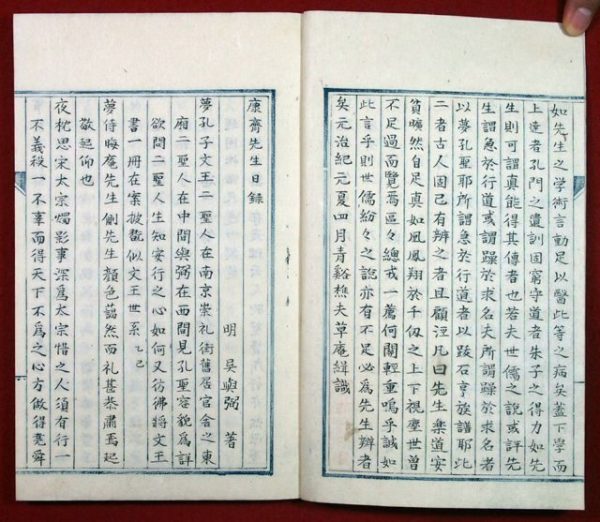 如先生之学術言動足以醫此等之病矣蓋下學而
上達者孔門之遺訓固窮守道者朱子之得力如先
生則可謂真能得其傳者也若夫世儒之說或評先
生謂急於行道或謂躁於求名夫所謂躁於求名者
以夢孔聖耶所謂急於行道者以跋石亨族譜耶此
二者古人固已有辨之者且顧涇凡曰先生樂道安
貧曠然自足真如鳳凰翔於千仞之上下視塵世曽
不足過而覽焉區々總戎一薦何關輕重嗚乎誠如
此言乎則世儒紛々之說亦有不足必為先生辨者
矣元治紀元夏四月青谿樵夫草庵緝識
康齋先生日錄
明 吳與弼 著
夢孔子文王二聖人在南京崇礼街舊居官舍之東
廂二聖人在中間與弼在西間見孔聖容貌為詳
欲問二聖人生知安行之心如何又彷彿將文王
書一冊在案披翫似文王世系乙巳
夢侍晦庵先生側先生顏色藹然而礼甚恭肅焉起
敬起仰也
夜枕思宋太宗燭影事深為太宗惜之人須有行一
不義殺一不辜而得天下不為之心方做得堯舜